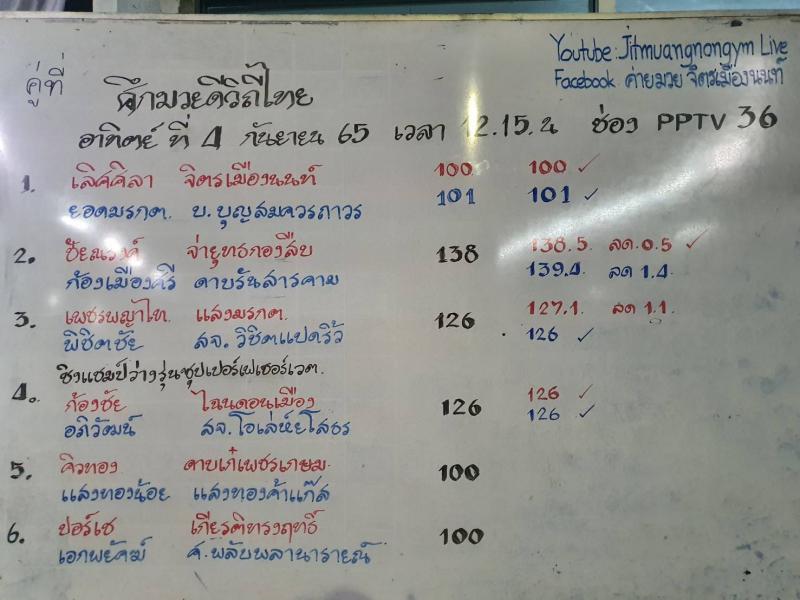 Youtube: Jitmuangnongym Live
Facebook ค่ายมวย จิตรเมืองนนท์
คู่ที่
ศึกมวยดีวิถีไทย
อาทิตย์ ที่ 4 กันยายน 65 เวลา 12.15.น ช่อง PPTV 36
1. เลิศศิลา จิตรเมืองนนท์ 100 100 ✓
ยอดมรกต. บ.บุญสมควรถาวร 101 101 ✓
2. ชัยณรงค์ จ่ายุทธกองสืบ 138 138.5. ลด.0.5 ✓
ก้องเมืองศรี ดาบรันสารคาม 139.4. ลด 1.4.
3. เพชรพญาไท. แสงมรกต. 126 127.1. ลด 1.1.
พิชิตชัย สจ.วิชิตแปดริ้ว 126 ✓
ชิงแชมป์ว่างรุ่นซุปเปอร์เฟเธอร์เวต.
4. ก้องชัย ไฉนดอนเมือง 126 126 ✓
อภิวัฒน์ สจ.โอเล่ห์ยโสธร 126 ✓
5. คิวทอง ดาบเก๋เพชรเกษม 100
แสงทองน้อย แสงทองค้าแก๊ส
6. ปอร์เช เกียรติทรงฤทธิ์ 100
เอกพยัคฆ์ ศ.พลับพลานารายณ์